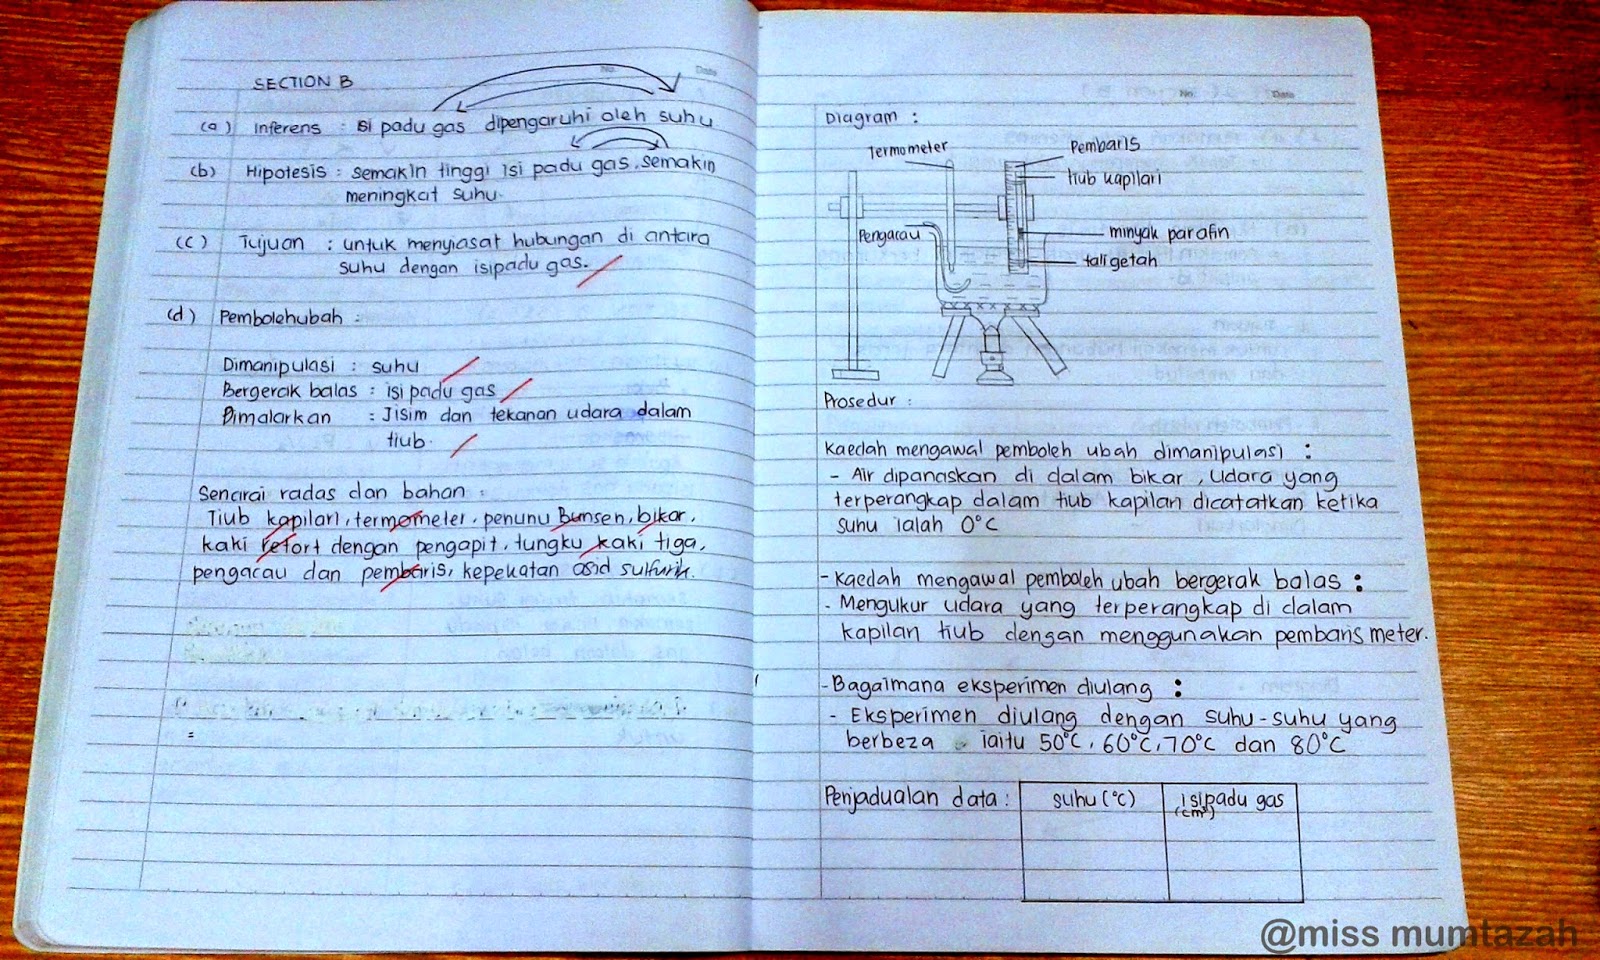 No.
Date
SECTION B
(a) Inferens : isi padu gas dipengaruhi oleh suhu
(b) Hipotesis : semakin tinggi isi padu gas, semakin
meningkat suhu.
(c) Tujuan : untuk menyiasat hubungan di antara
suhu dengan isipadu gas.
(d) Pembolehubah :
Dimanipulasi : suhu
Bergerak balas : isi padu gas
Dimalarkan : Jisim dan tekanan udara dalam
tiub.
Senarai radas dan bahan :
Tiub kapilari, termometer, penunu Bunsen, bikar,
kaki retort dengan pengapit, tungku kaki tiga,
pengacau dan pembaris, kepekatan asid sulfurik.
No.
Date
Diagram :
Termometer
Pembaris
tiub kapilari
Pengacau
minyak parafin
tali getah
Prosedur :
Kaedah mengawal pemboleh ubah dimanipulasi :
- Air dipanaskan di dalam bikar, udara yang
terperangkap dalam tiub kapilari dicatatkan ketika
suhu ialah 0°C
- Kaedah mengawal pemboleh ubah bergerak balas :
- Mengukur udara yang terperangkap di dalam
kapilari tiub dengan menggunakan pembaris meter.
- Bagaimana eksperimen diulang :
- Eksperimen diulang dengan suhu-suhu yang
berbeza iaitu 50°C, 60°C, 70°C dan 80°C
Penjadualan data :
suhu (°C)
isipadu gas
(cm³)
@miss mumtazah